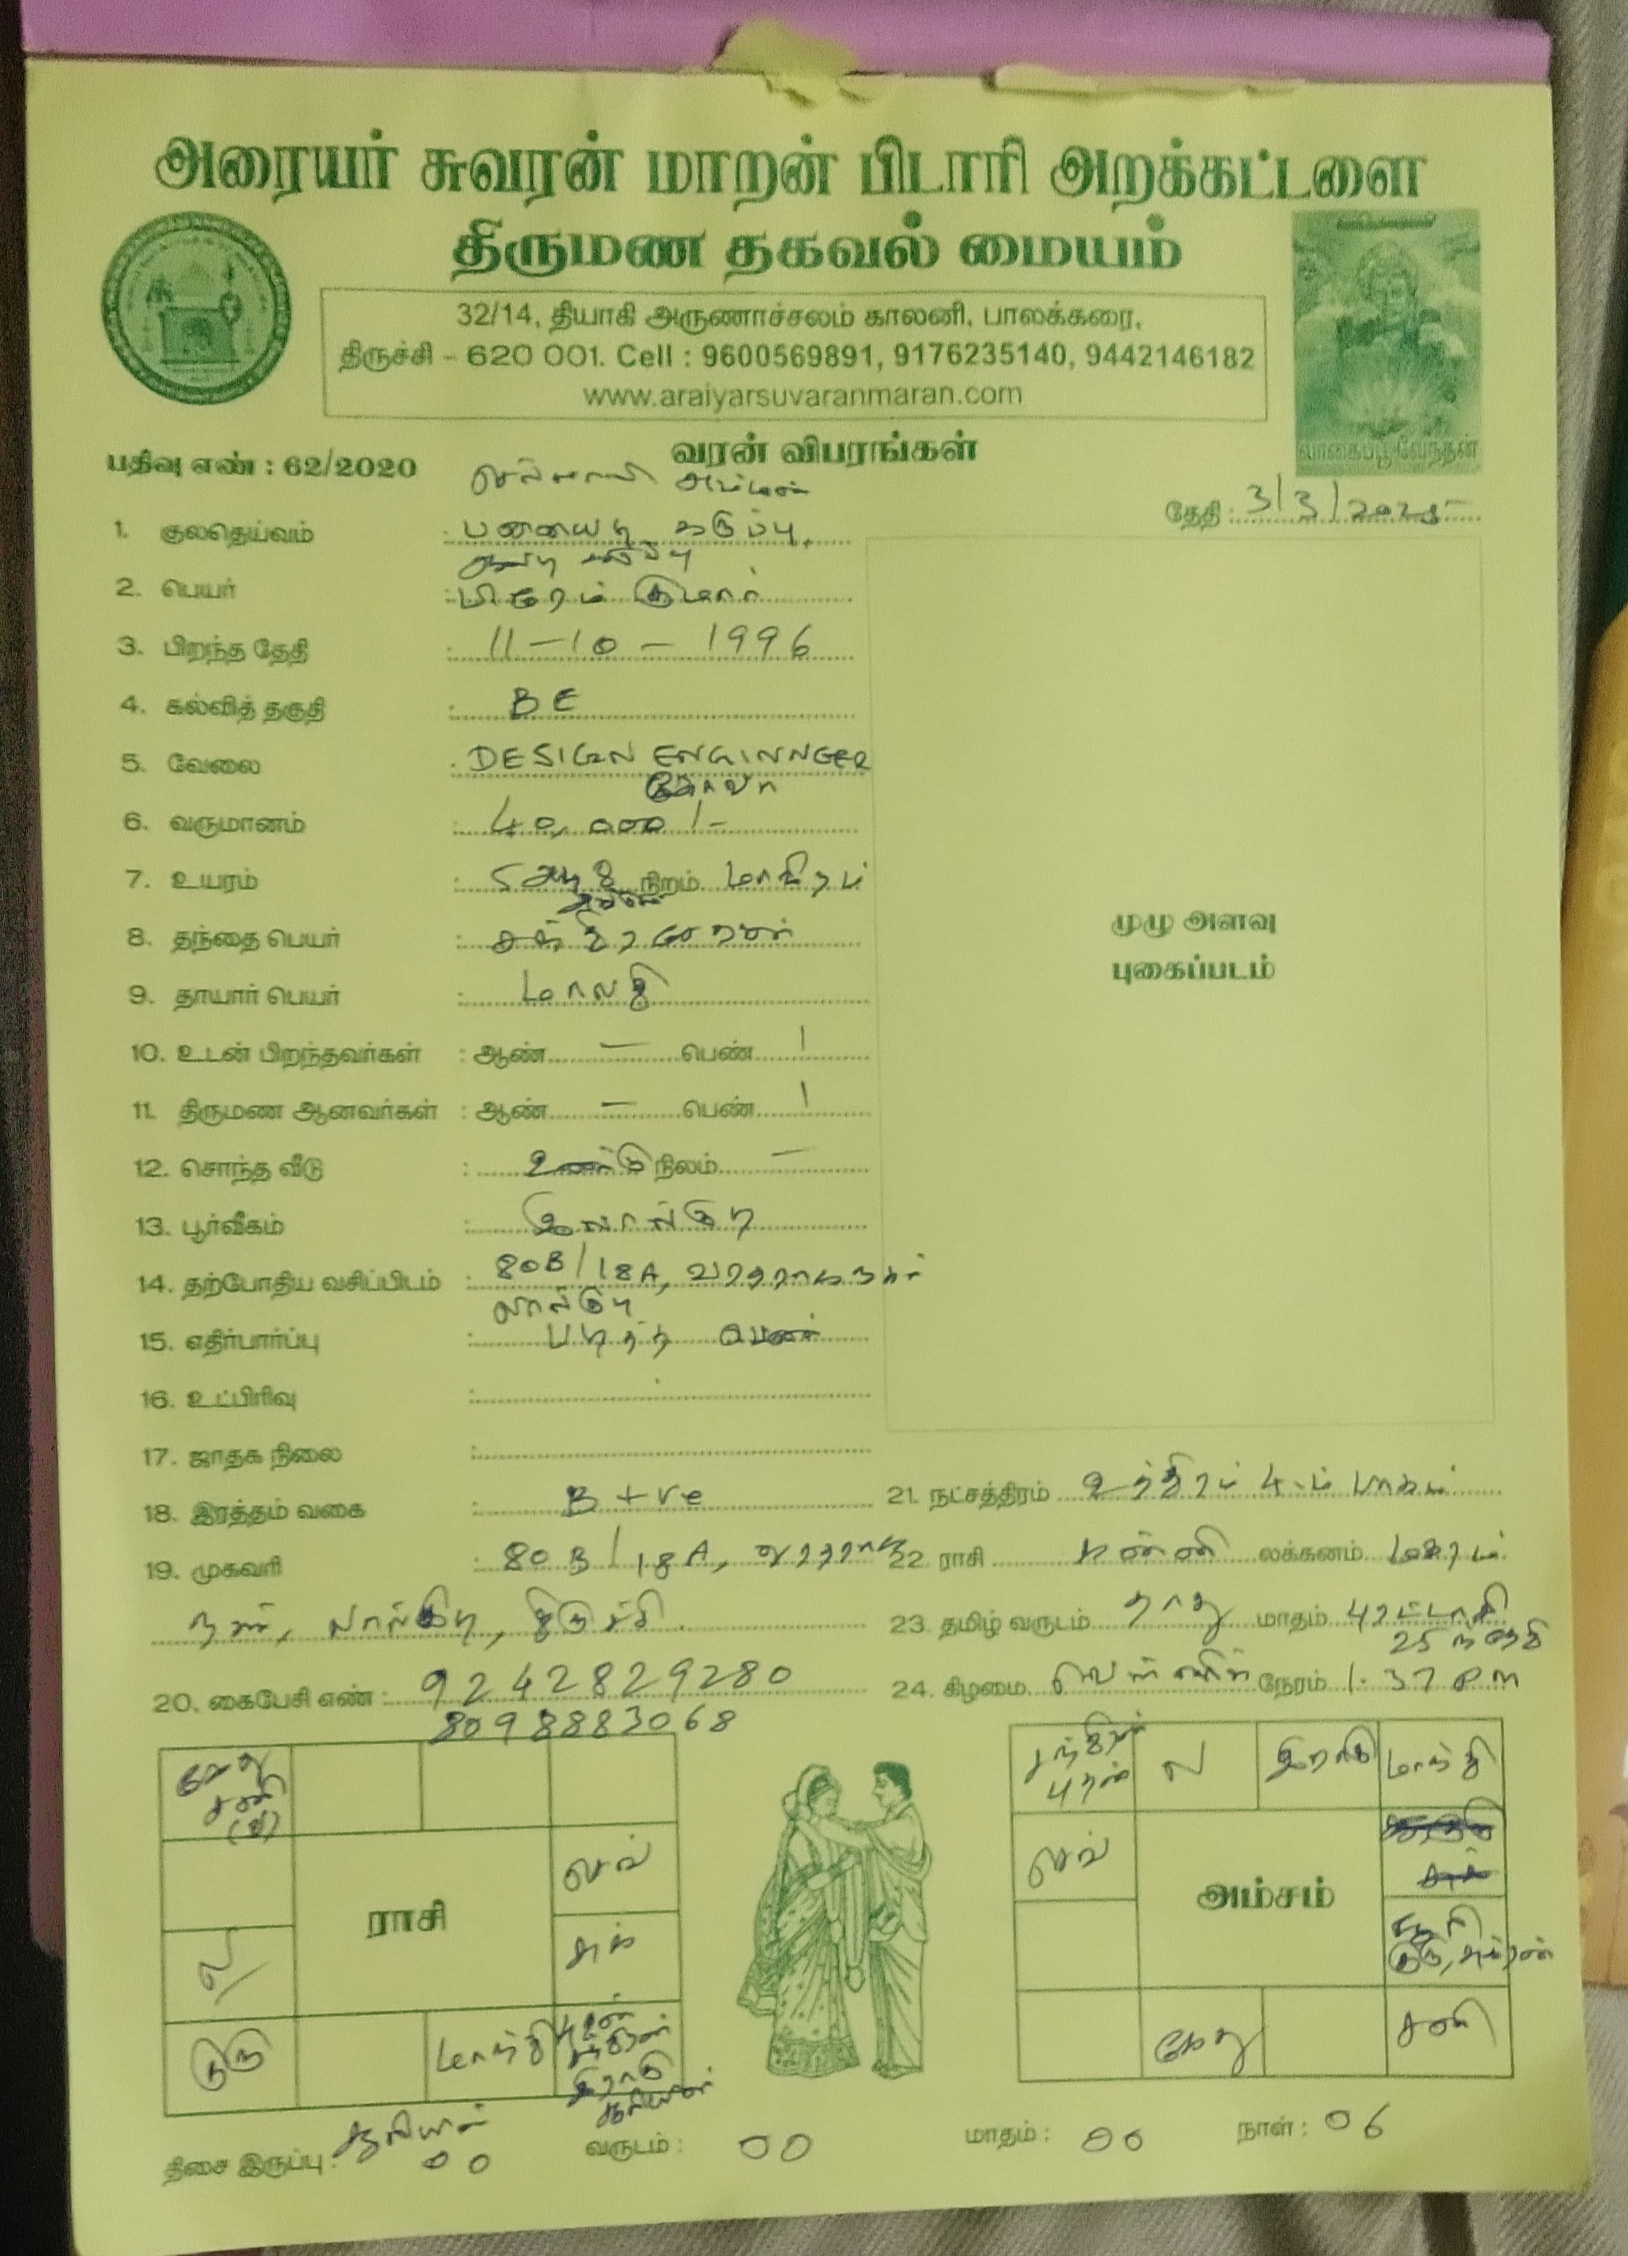 அரையர் சுவரன் மாறன் பிடாரி அறக்கட்டளை
திருமண தகவல் மையம்
32/14, தியாகி அருணாச்சலம் காலனி, பாலக்கரை,
திருச்சி - 620 001. Cell : 9600569891, 9176235140, 9442146182
www.araiyarsuvaranmaran.com
வாகைப்பூ வேந்தன்
பதிவு எண் : 62/2020
வரன் விபரங்கள்
தேதி : 3/3/2025
அம்மன்
1. குலதெய்வம் : கருப்பு,
2. பெயர் : பிரேம் குமார்
3. பிறந்த தேதி : 11-10-1996
4. கல்வித் தகுதி : BE
5. வேலை : DESIGN ENGINNGER
6. வருமானம் : 40,000/-
7. உயரம் : 5 அடி 8 நிறம் மாநிறம்
8. தந்தை பெயர் : சந்திரசேகரன்
9. தாயார் பெயர் : மாலதி
முழு அளவு
புகைப்படம்
10. உடன் பிறந்தவர்கள் : ஆண் — பெண் 1
11. திருமண ஆனவர்கள் : ஆண் — பெண் 1
12. சொந்த வீடு : உண்டு நிலம் —
13. பூர்வீகம் : இலால்குடி
14. தற்போதிய வசிப்பிடம் : 80B/18A, வரதராஜ நகர்
லால்குடி
15. எதிர்பார்ப்பு : படித்த பெண்
16. உட்பிரிவு :
17. ஜாதக நிலை :
18. இரத்தம் வகை : B +ve
19. முகவரி : 80B/18A, வரதராஜ
நகர், லால்குடி, திருச்சி.
20. கைபேசி எண் : 9242829280
8098883068
21. நட்சத்திரம் உத்திரம் 4-ம் பாதம்
22 ராசி கன்னி லக்கனம் மகரம்
23. தமிழ் வருடம் தாது மாதம் புரட்டாசி
25 ந் தேதி
24. கிழமை வெள்ளி நேரம் 1.37 PM
கேது
சனி
(வ)
செவ்
ராசி
ல
சுக்
குரு
மாந்தி
புதன்
சந்திரன்
இராகு
சூரியன்
சந்திரன்
புதன்
ல
இராகு
மாந்தி
செவ்
அம்சம்
சூரி
குரு, சுக்ரன்
கேது
சனி
திசை இருப்பு : சூரியன்
00
வருடம் : 00
மாதம் : 00
நாள் : 06